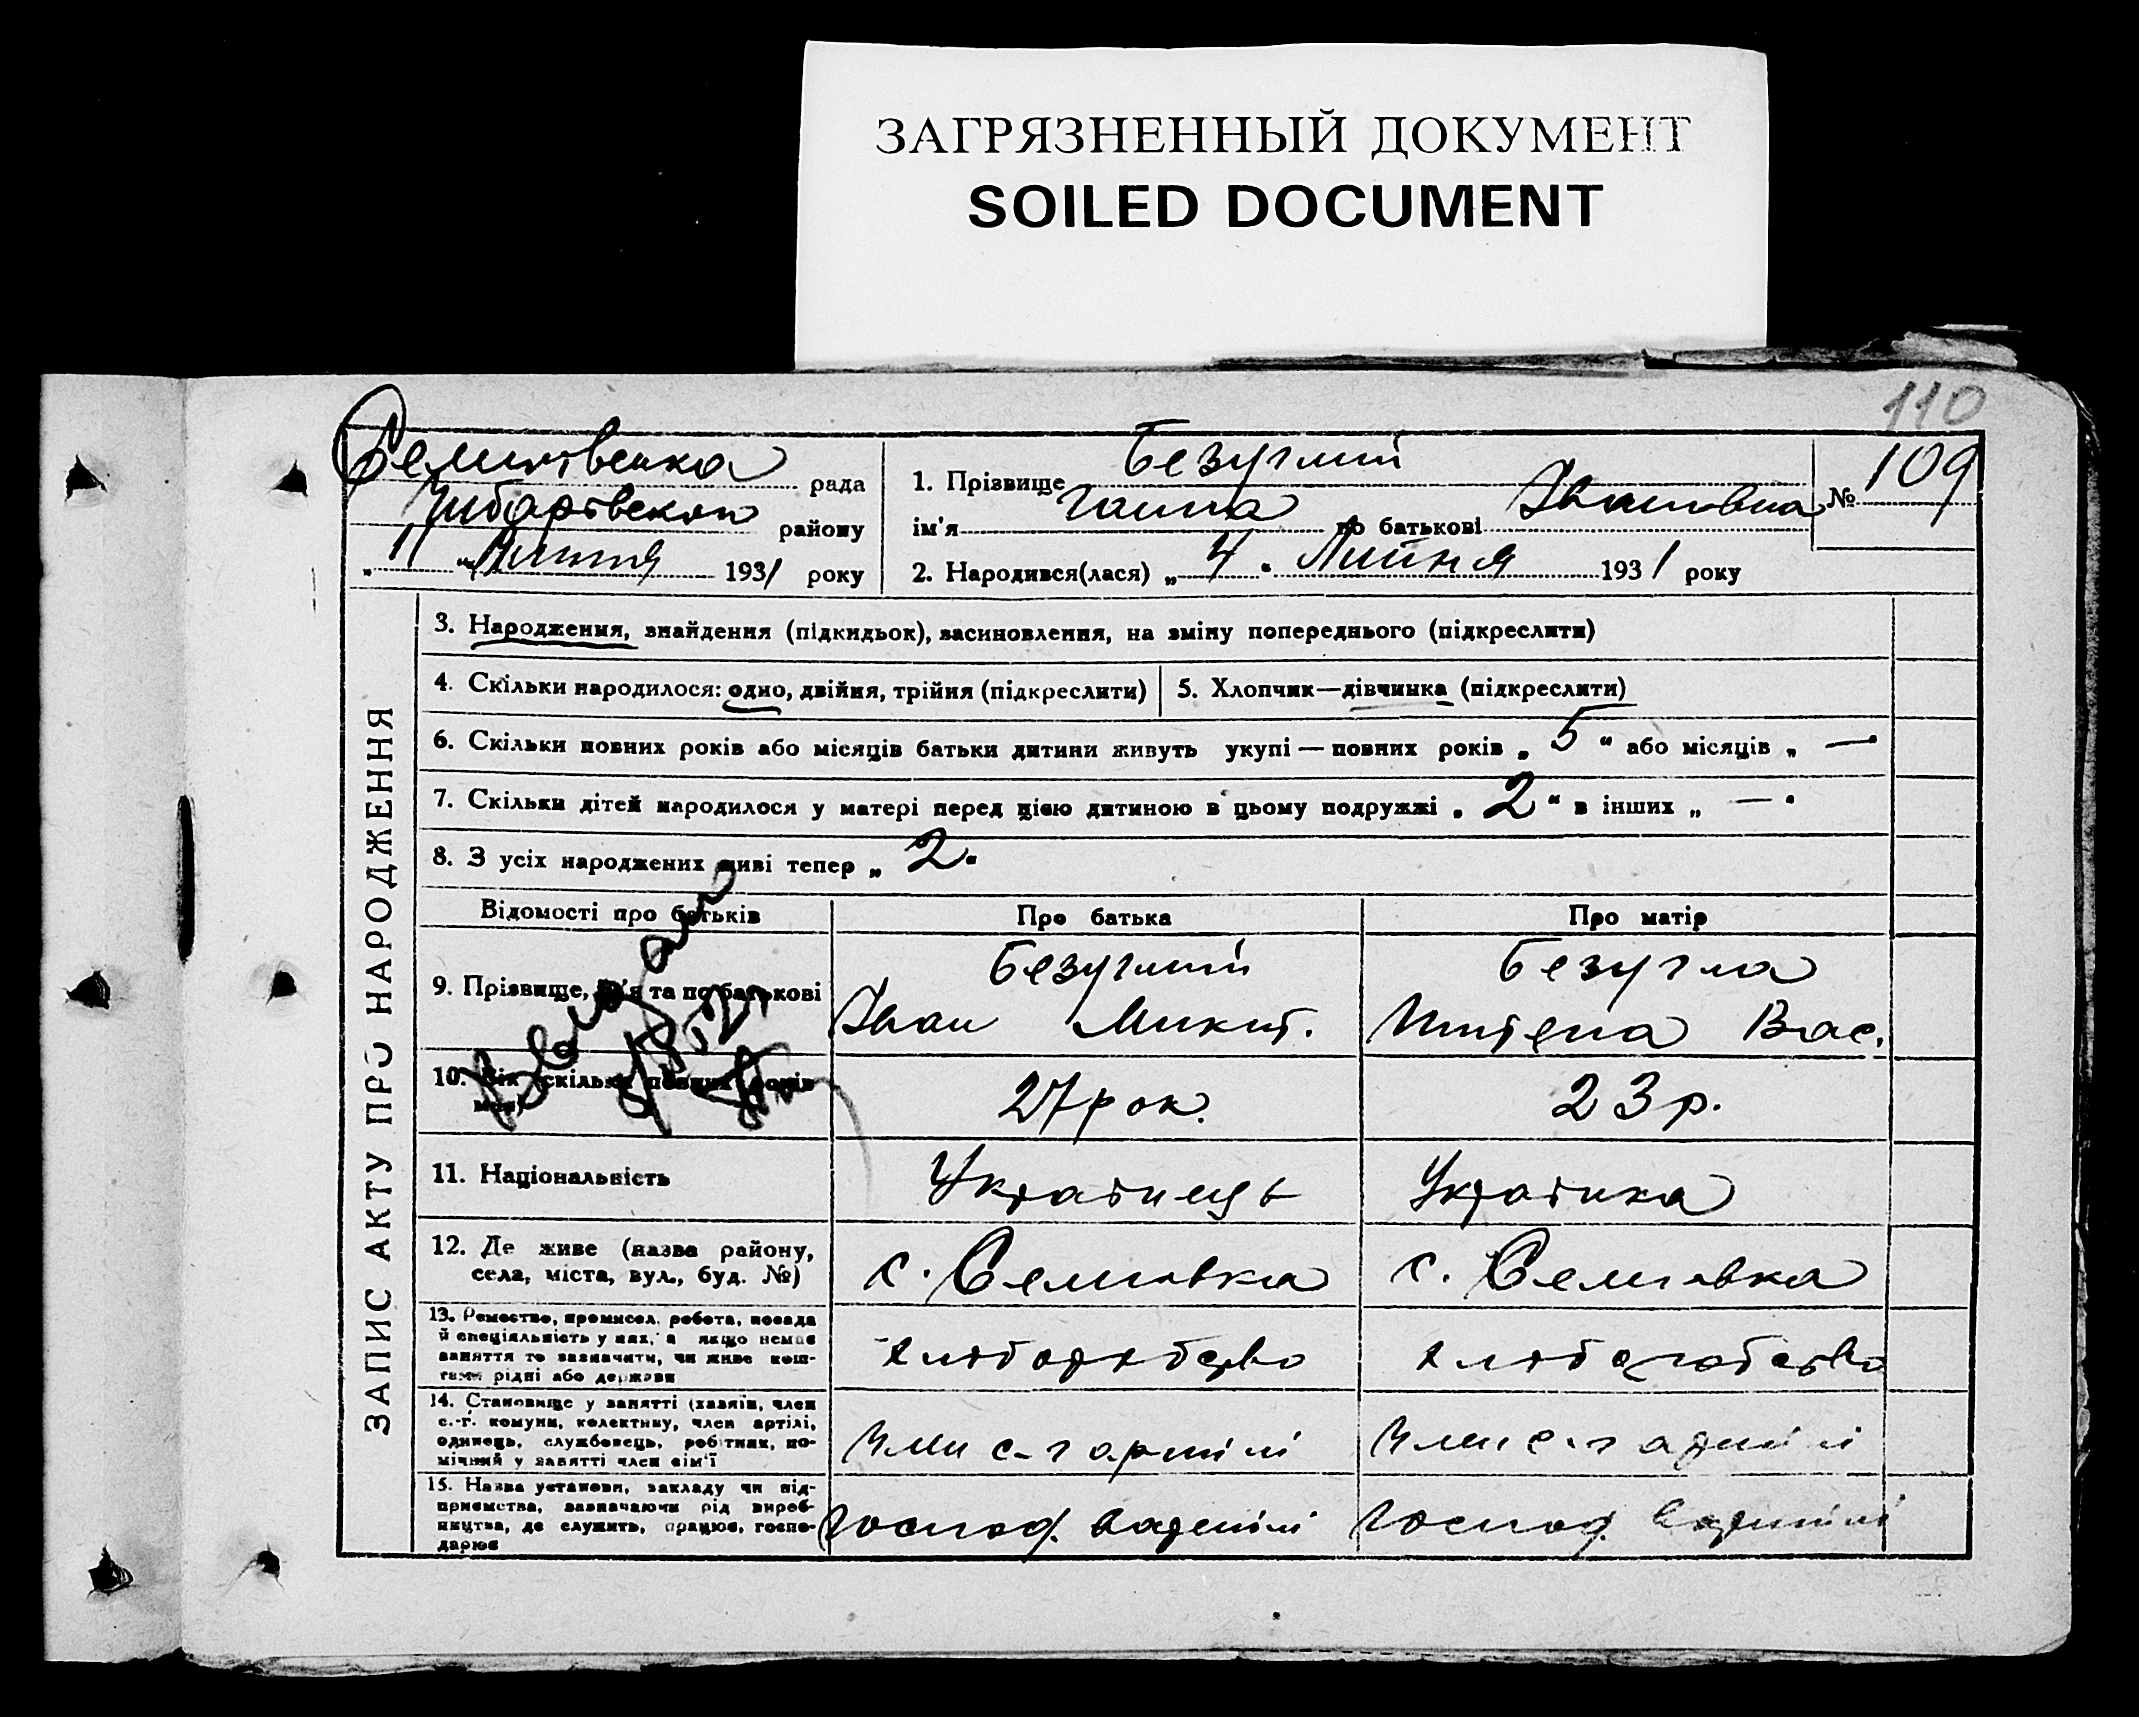 ЗАГРЯЗНЕННЫЙ ДОКУМЕНТ
SOILED DOCUMENT
110
рада
району
„ 11 „ Липня 1931 року
1. Прізвище Безуглий
ім'я Ганна по батькові Івановна
№ 109
2. Народився(лася) „ 4 „ Липня 1931 року
ЗАПИС АКТУ ПРО НАРОДЖЕННЯ
3. Народження, знайдення (підкидьок), засиновлення, на зміну попереднього (підкреслити)
4. Скільки народилося: одно, двійня, трійня (підкреслити)
5. Хлопчик—дівчинка (підкреслити)
6. Скільки повних років або місяців батьки дитини живуть укупі — повних років „ 5 " або місяців „ —
7. Скільки дітей народилося у матері перед цією дитиною в цьому подружжі „ 2 " в інших „ — "
8. З усіх народжених живі тепер „ 2 "
Відомості про батьків
Про батька
Про матір
9. Прізвище, ім'я та по батькові
Безуглий
Іван Микит.
Безугла
Вас.
10. Вік (скільки повних років
має)
27 рок.
23 р.
11. Національність
Українець
Українка
12. Де живе (назва району,
села, міста, вул., буд. №)
с. Семеновка
с. Семеновка
13. Ремество, промисел, робота, посада
й спеціяльність у них, а якщо немає
заняття то зазначити, чи живе кош-
тами рідні або держави
хліборобство
хліборобство
14. Становище у занятті (хазяїн, член
с.-г. комуни, колективу, член артілі,
одинець, службовець, робітник, по-
мічний у занятті член сім'ї
член с-г артілі
член с-г артілі
15. Назва установи, закладу чи під-
приємства, зазначаючи рід вироб-
ництва, де служить, працює, госпо-
дарює
господ. в артілі
господ. в артілі